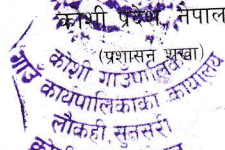 कोशी प्रदेश, नेपाल
(प्रशासन शाखा)
कोशी गाउँपालिका
गाउँ कार्यपालिकाको कार्यालय
लौकही, सुनसरी